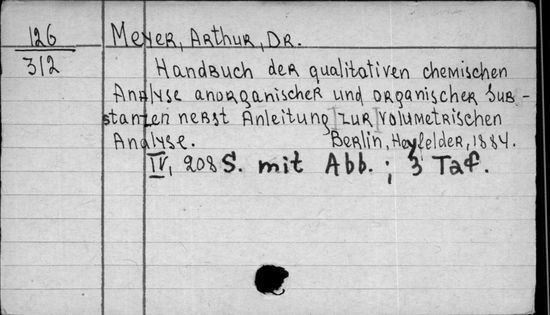 126
312
Meyer, Arthur, Dr.
Handbuch der qualitativen chemischen
Analyse anorganischer und organischer Sub-
stanzen nebst Anleitung zur volumetrischen
Analyse. Berlin, Heyfelder, 1884.
IV, 208 S. mit Abb.; 3 Taf.